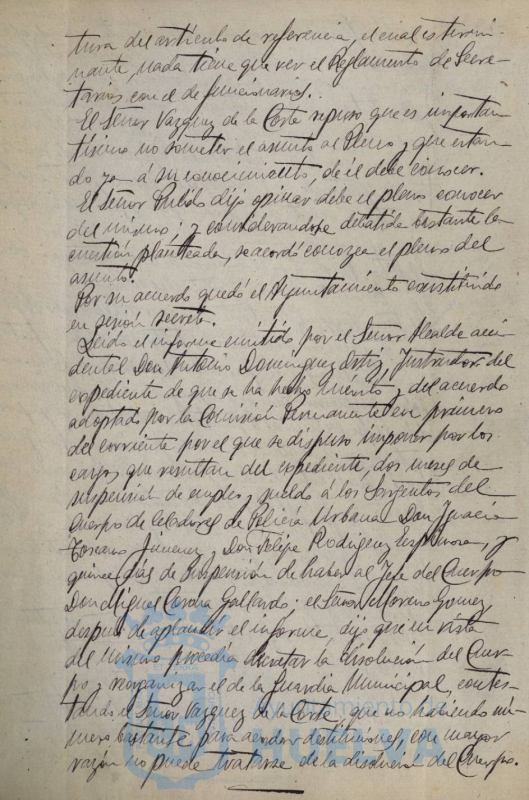 tura del artículo de referencia, el cual es termi-
nante, nada tiene que ver el Reglamento de Secre-
tarios con el de funcionarios.
El Señor Vazquez de la Corte repuso que es importan-
tísimo no someter el asunto al Pleno y que estan-
do ya á su conocimiento, de él debe conocer.
El Señor Pulido dijo opinar debe el pleno conocer
del mismo, y considerandose debatida bastante la
cuestión planteada, se acordó conozca el pleno del
asunto.
Por su acuerdo quedó el Ayuntamiento constituido
en sesión secreta.
Leido el informe emitido por el Señor Alcalde acci-
dental Don Antonio Dominguez Ortiz, Instructor del
expediente de que se ha hecho mérito y del acuerdo
adoptado por la Comisión Permanente en primero
del corriente por el que se dispuso imponer por los
cargos que resultan del expediente, dos meses de
suspensión de empleo y sueldo á los Sargentos del
Cuerpo de Celadores de Policía Urbana Don Ignacio
Toscano Jimenez y Don Felipe Rodriguez Espinosa, y
quince días de suspensión de haber al Jefe del Cuerpo
Don Miguel Corona Gallardo; el Señor Moreno Gomez,
despues de aplaudir el informe, dijo que en vista
del mismo procedía decretar la disolución del Cuer-
po y reorganizar el de la Guardia Municipal, contes-
tando el Señor Vazquez de la Corte, que no habiendo nú-
mero bastante para acordar destituciones, con mayor
razón no puede tratarse de la disolución del Cuerpo.
Ayuntamiento de
HUELVA